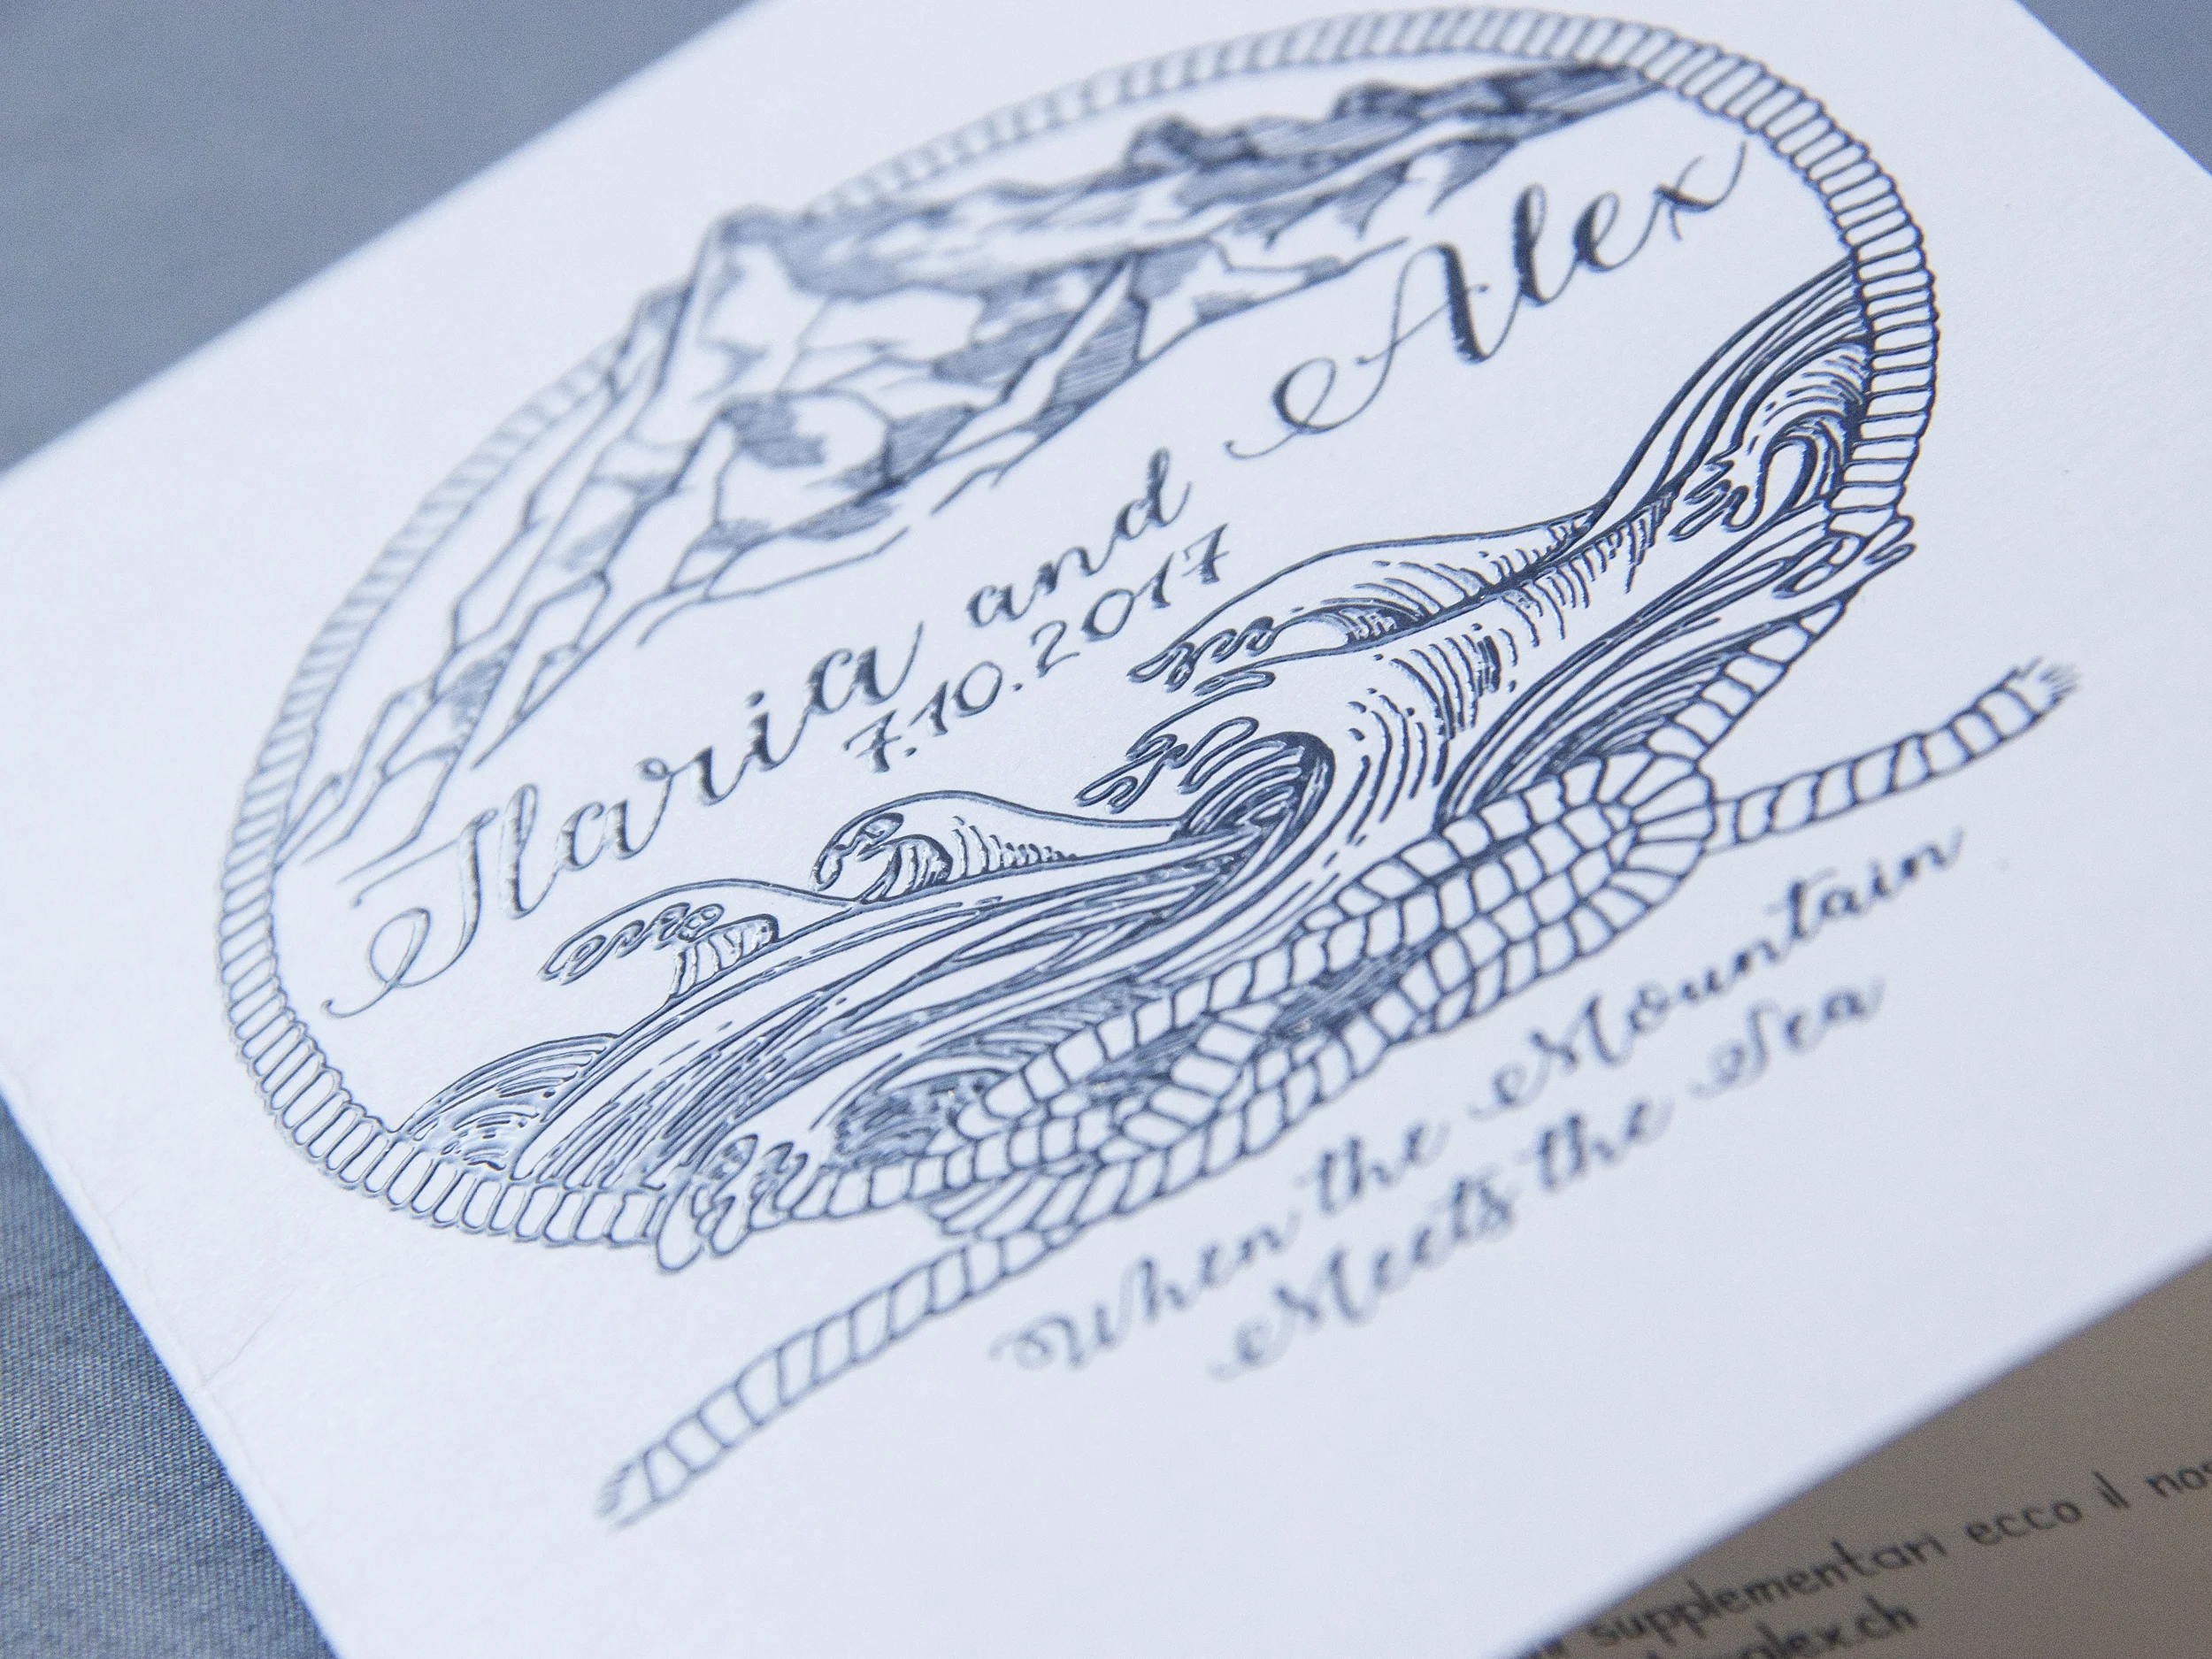 Ilaria and Alex
7.10.2017
When the Mountain
Meets the Sea
supplementari ecco il